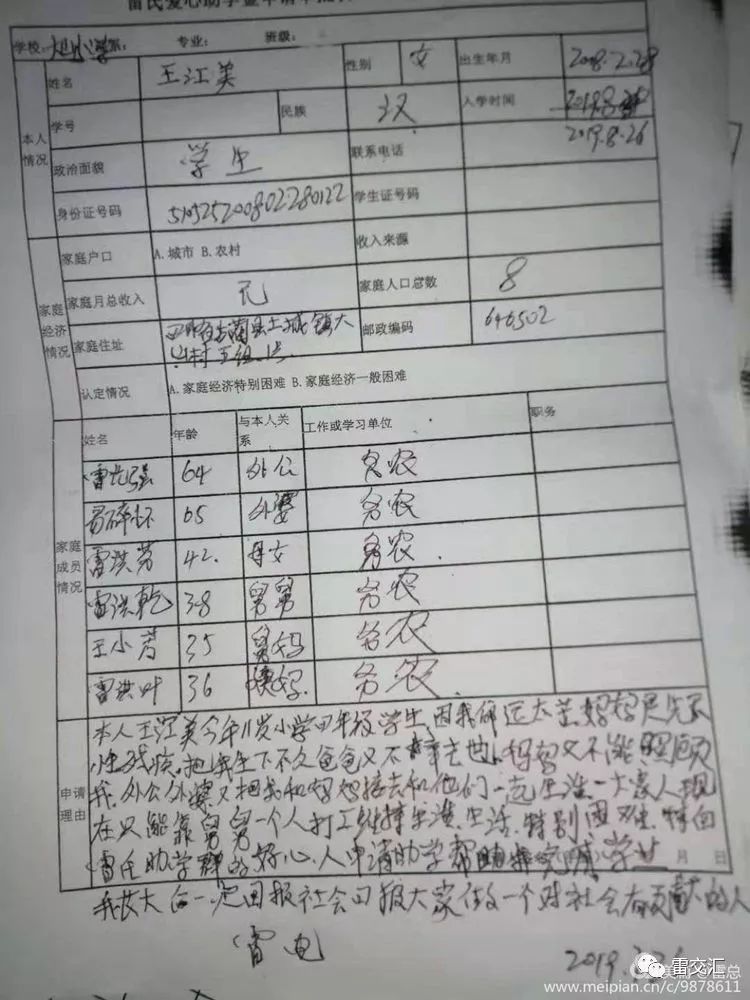 雷氏爱心助学金申请审批
学校: 小学 系: 专业: 班级:
本人情况
姓名 王江美 性别 女 出生年月 2008.2.28
学号 民族 汉 入学时间 2019.8.26
政治面貌 学生 联系电话
身份证号码 学生证号码
家庭经济情况
家庭户口 A.城市 B.农村 收入来源
家庭月总收入 元 家庭人口总数 8
家庭住址 县土城镇大村五组 邮政编码 646502
认定情况 A.家庭经济特别困难 B.家庭经济一般困难
家庭成员情况
姓名 年龄 与本人关系 工作或学习单位 职务
雷 强 64 外公 务农
65 外婆 务农
雷洪芳 42. 母女 务农.
雷洪乾 38 舅舅 务农
王小芳 35 舅妈 务农
雷洪叶 36 务农.
申请理由
本人王江美今年11岁小学四年级学生,因我命运太苦.妈妈是先天
性残疾.把我生下不久爸爸又不 去世.妈妈又不能照顾
我.外公外婆又把我和妈妈接去和他们一起生活.一大家人现
在只能靠舅舅一个人打工维持生活.生活.特别困难.特向
雷氏助学群的好心人申请助学帮助 学业 月 日
我长大后一定回报社会回报大家做一个对社会有贡献的人
雷电
2019.
雷交汇
雷总
www.meipian.cn/c/9878611